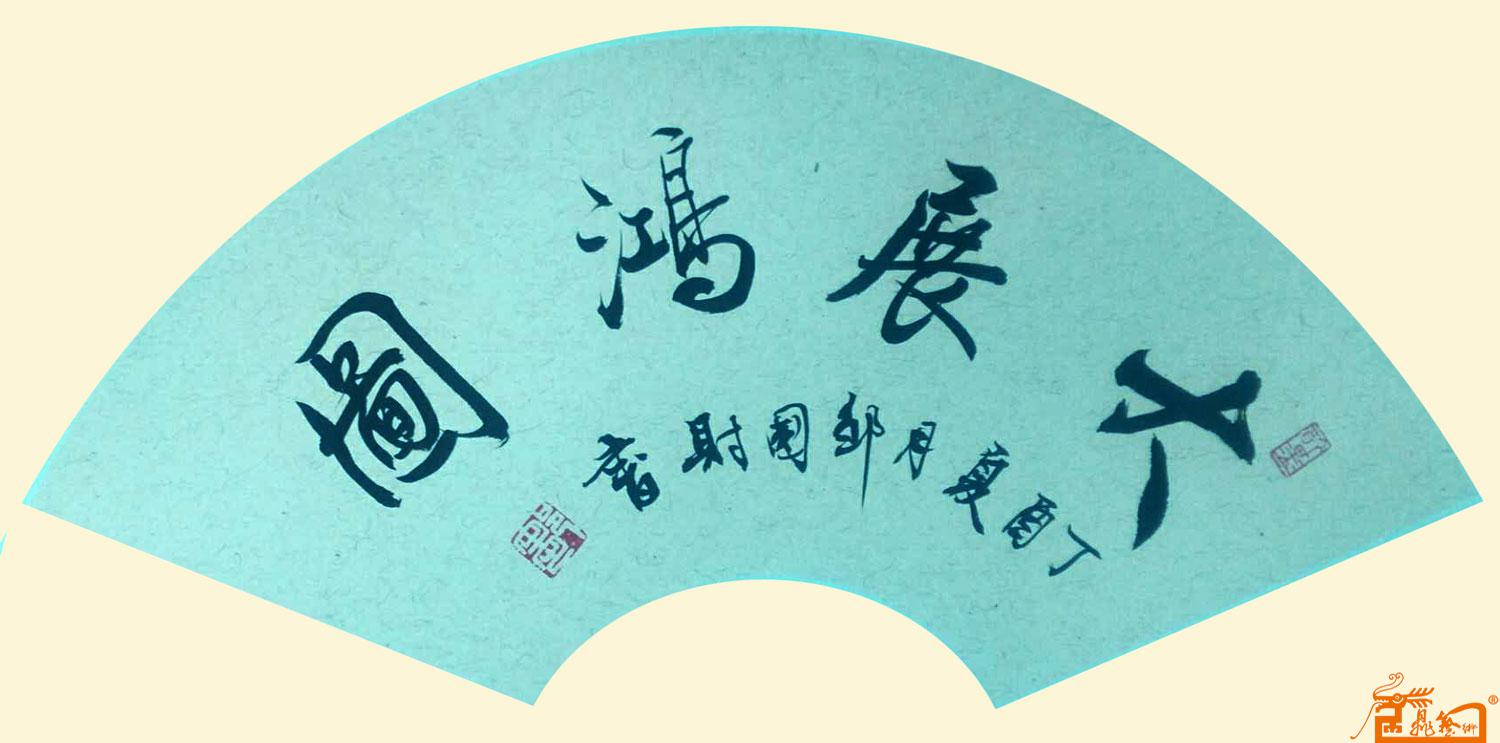 大展鴻圖
丁酉夏月鄒國財書